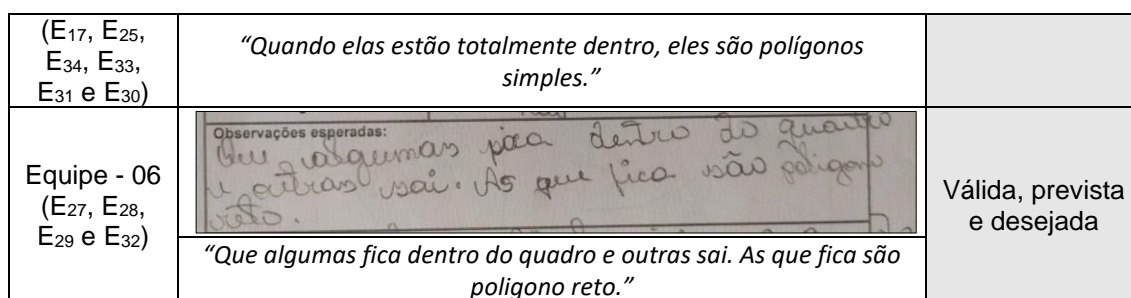 (E17, E25,
E34, E33,
E31 e E30)
“Quando elas estão totalmente dentro, eles são polígonos
simples.”
Equipe - 06
(E27, E28,
E29 e E32)
Observações esperadas:
Que algumas fica dentro do quadro
e outras sai. As que fica são poligono
reto.
“Que algumas fica dentro do quadro e outras sai. As que fica são
poligono reto.”
Válida, prevista
e desejada